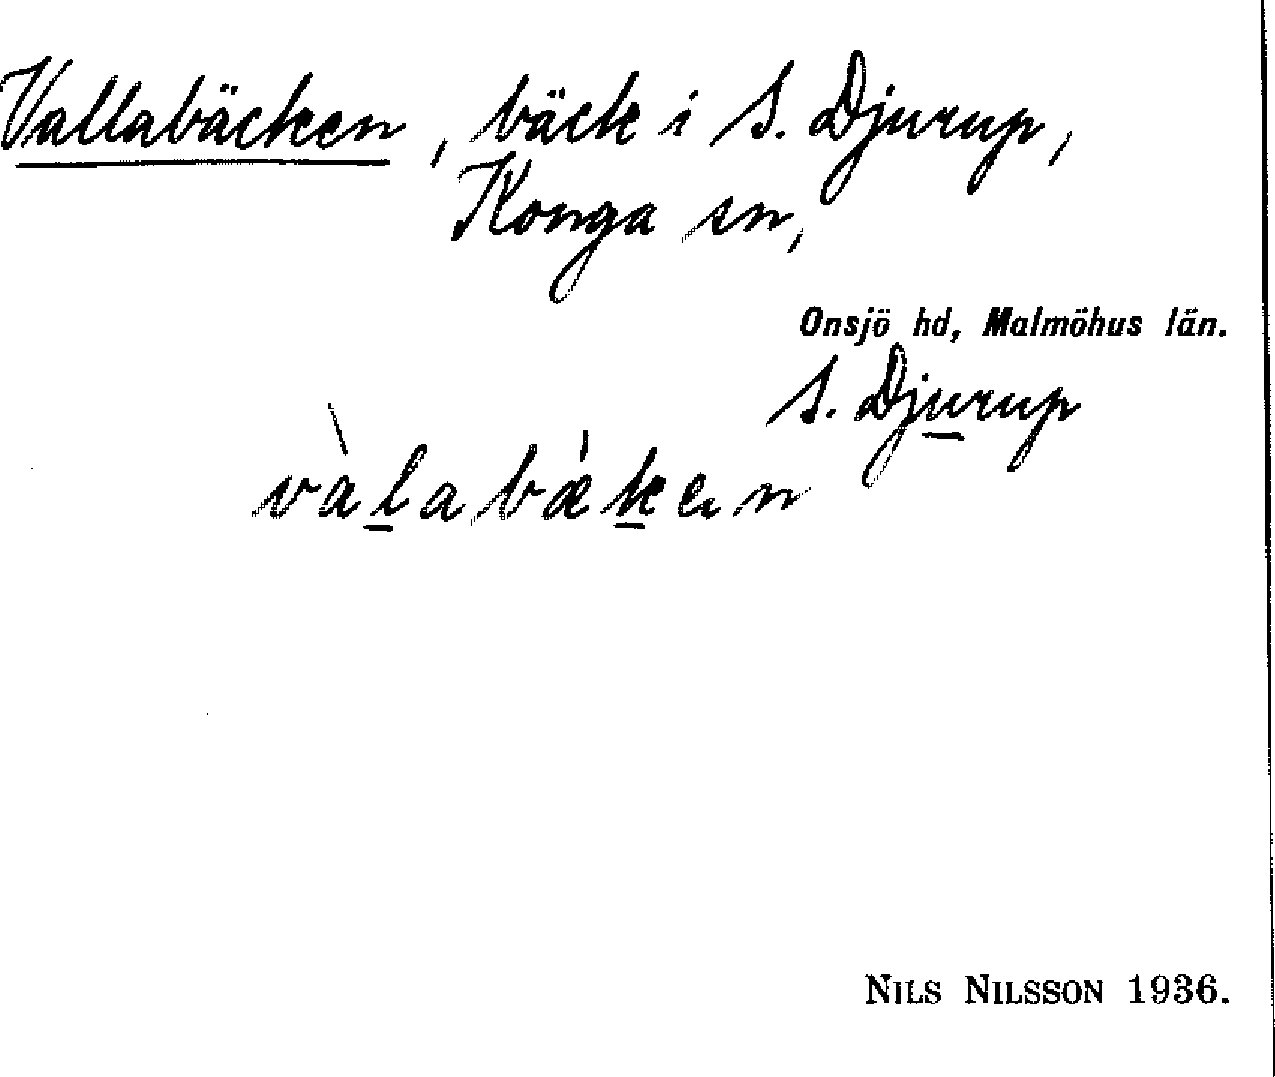 Vallabäcken, bäck i S. Djurup,
Konga sn,
Onsjö hd, Malmöhus län.
S. Djurup
vàlabákən
NILS NILSSON 1936.